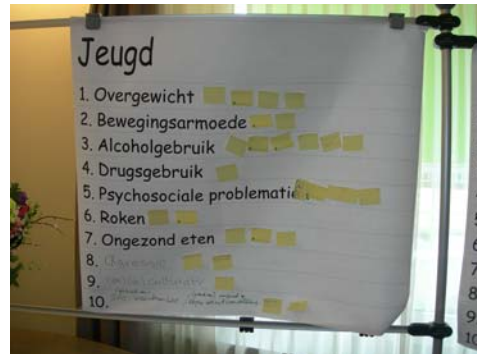 Jeugd
1. Overgewicht
2. Bewegingsarmoede
3. Alcoholgebruik
4. Drugsgebruik
5. Psychosociale problematie
6. Roken
7. Ongezond eten
8.
9.
10.
7
8
9
10